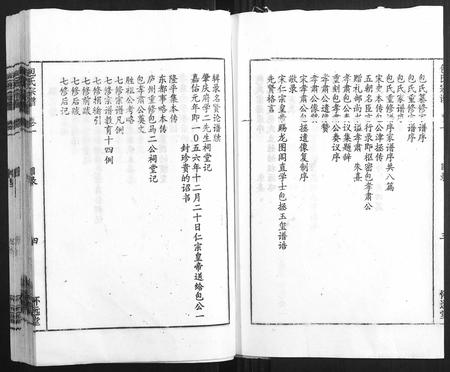 包氏墓修谱序
包氏重修谱序
包氏家谱序
包氏重修谱序家谱序共八篇
宋史本传包公孝肃传
五朝名臣言行录即枢密包孝肃公
赠礼部尚书谥孝肃 朱熹
孝肃包公奏议集题辞
重刻包孝肃公奏议序
孝肃公遗像赞
孝肃公像赞
宋孝肃包公拯遗像复制序
敕录
宋仁宗皇帝赐龙图阁直学士包拯玉玺谱诰
先贤格言
辑录名贤论谱牍
肇庆府学二先生祠堂记
嘉佑元年即一〇五六年十二月二十日仁宗皇帝送给包公一
封珍贵的诏书
隆平集本传
东都事略本传
包孝肃公奠文
庐州重修包马二公祠堂记
胜祖公考略
七修宗谱凡例
七修宗谱教育十四例
七修捐缘引
七修前跋
七修后跋
七修后记
包氏宗谱
卷一
目录
四
怀远堂
三